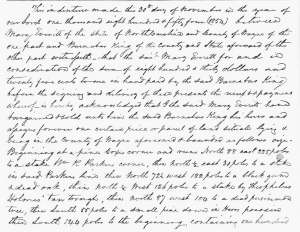 This indenture made the 28th day of November in the year of
our Lord one thousand eight hundred & fifty four (1854) between
Mary Everitt of the State of North Carolina and County of Wayne of the
one part and Barnabas King of the County and State aforesaid of the
other part witnesseth: that the said Mary Everitt for and in
consideration of the sum of eight hundred & thirty dollars and
twenty five cents in hand paid by the said Barnabas King
before the signing and delivery of these presents the receipt & payment
whereof is hereby acknowledged that I the said Mary Everitt have
bargained & sold unto him the said Barnabas King his heirs and
assigns forever one certain piece or parcel of land situate lying &
being in the County of Wayne aforesaid & bounded as follows viz:
Beginning at a pine Copes corner and runs North 88 east 225 poles
to a stake Wm. R. Parkers corner, thence north 4 east 30 poles to a stake
in said Parkers line, then North 72 west 188 poles to a black gum &
a dead oak, then north 4 West 126 poles to a stake by Theophilus
Holmes' Fan trough, then north 87 west 100 to a dead persimmon
tree, thence south 55 poles to a small pine down in
then South 144 poles to the beginning, containing one hundred